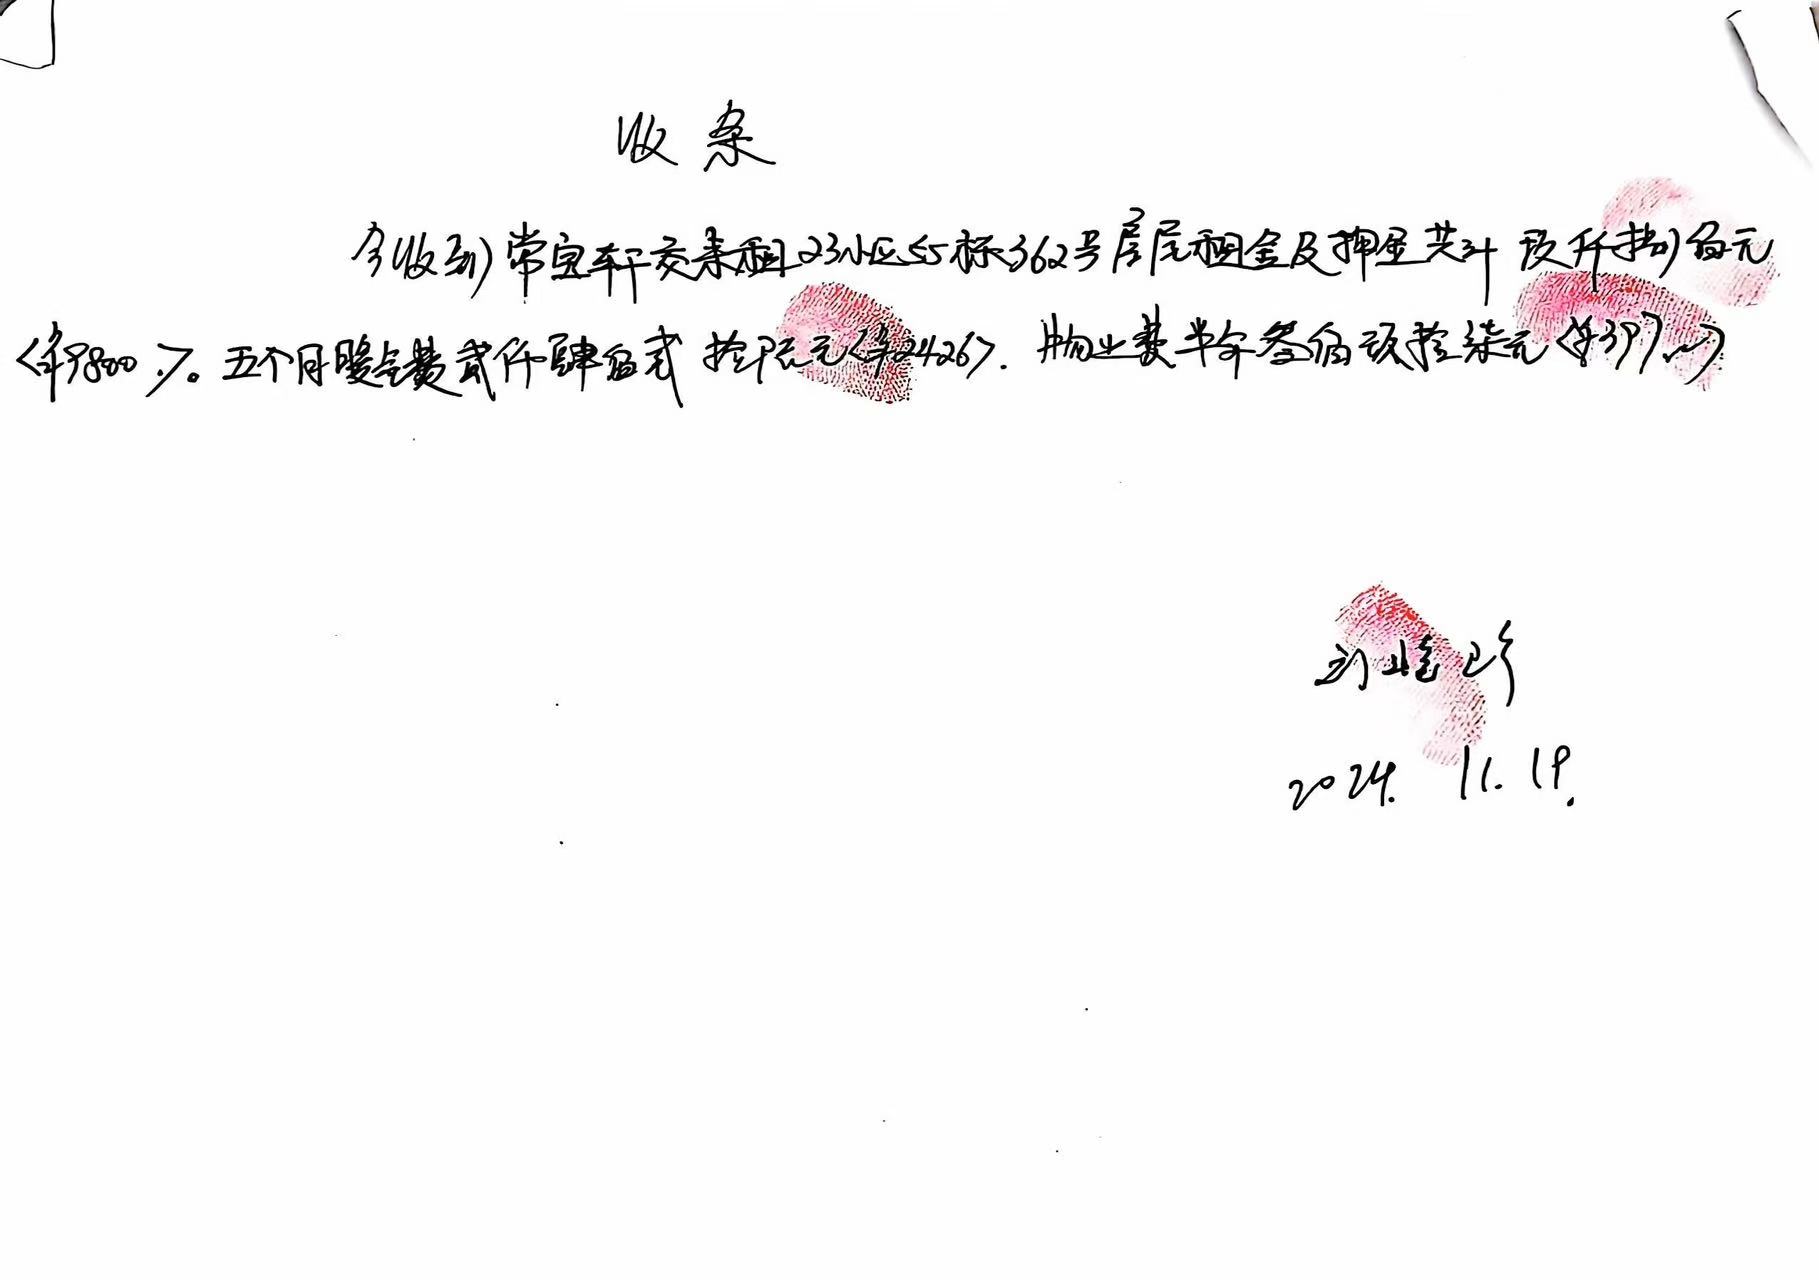 收条
今收到常宝轩交来租23小区55栋362号房屋租金及押金共计玖仟捌佰元
(¥9800.)。五个月暖气费贰仟肆佰贰拾陆元(¥2426). 物业费半年叁佰玖拾柒元(¥397.)
2024. 11. 19.